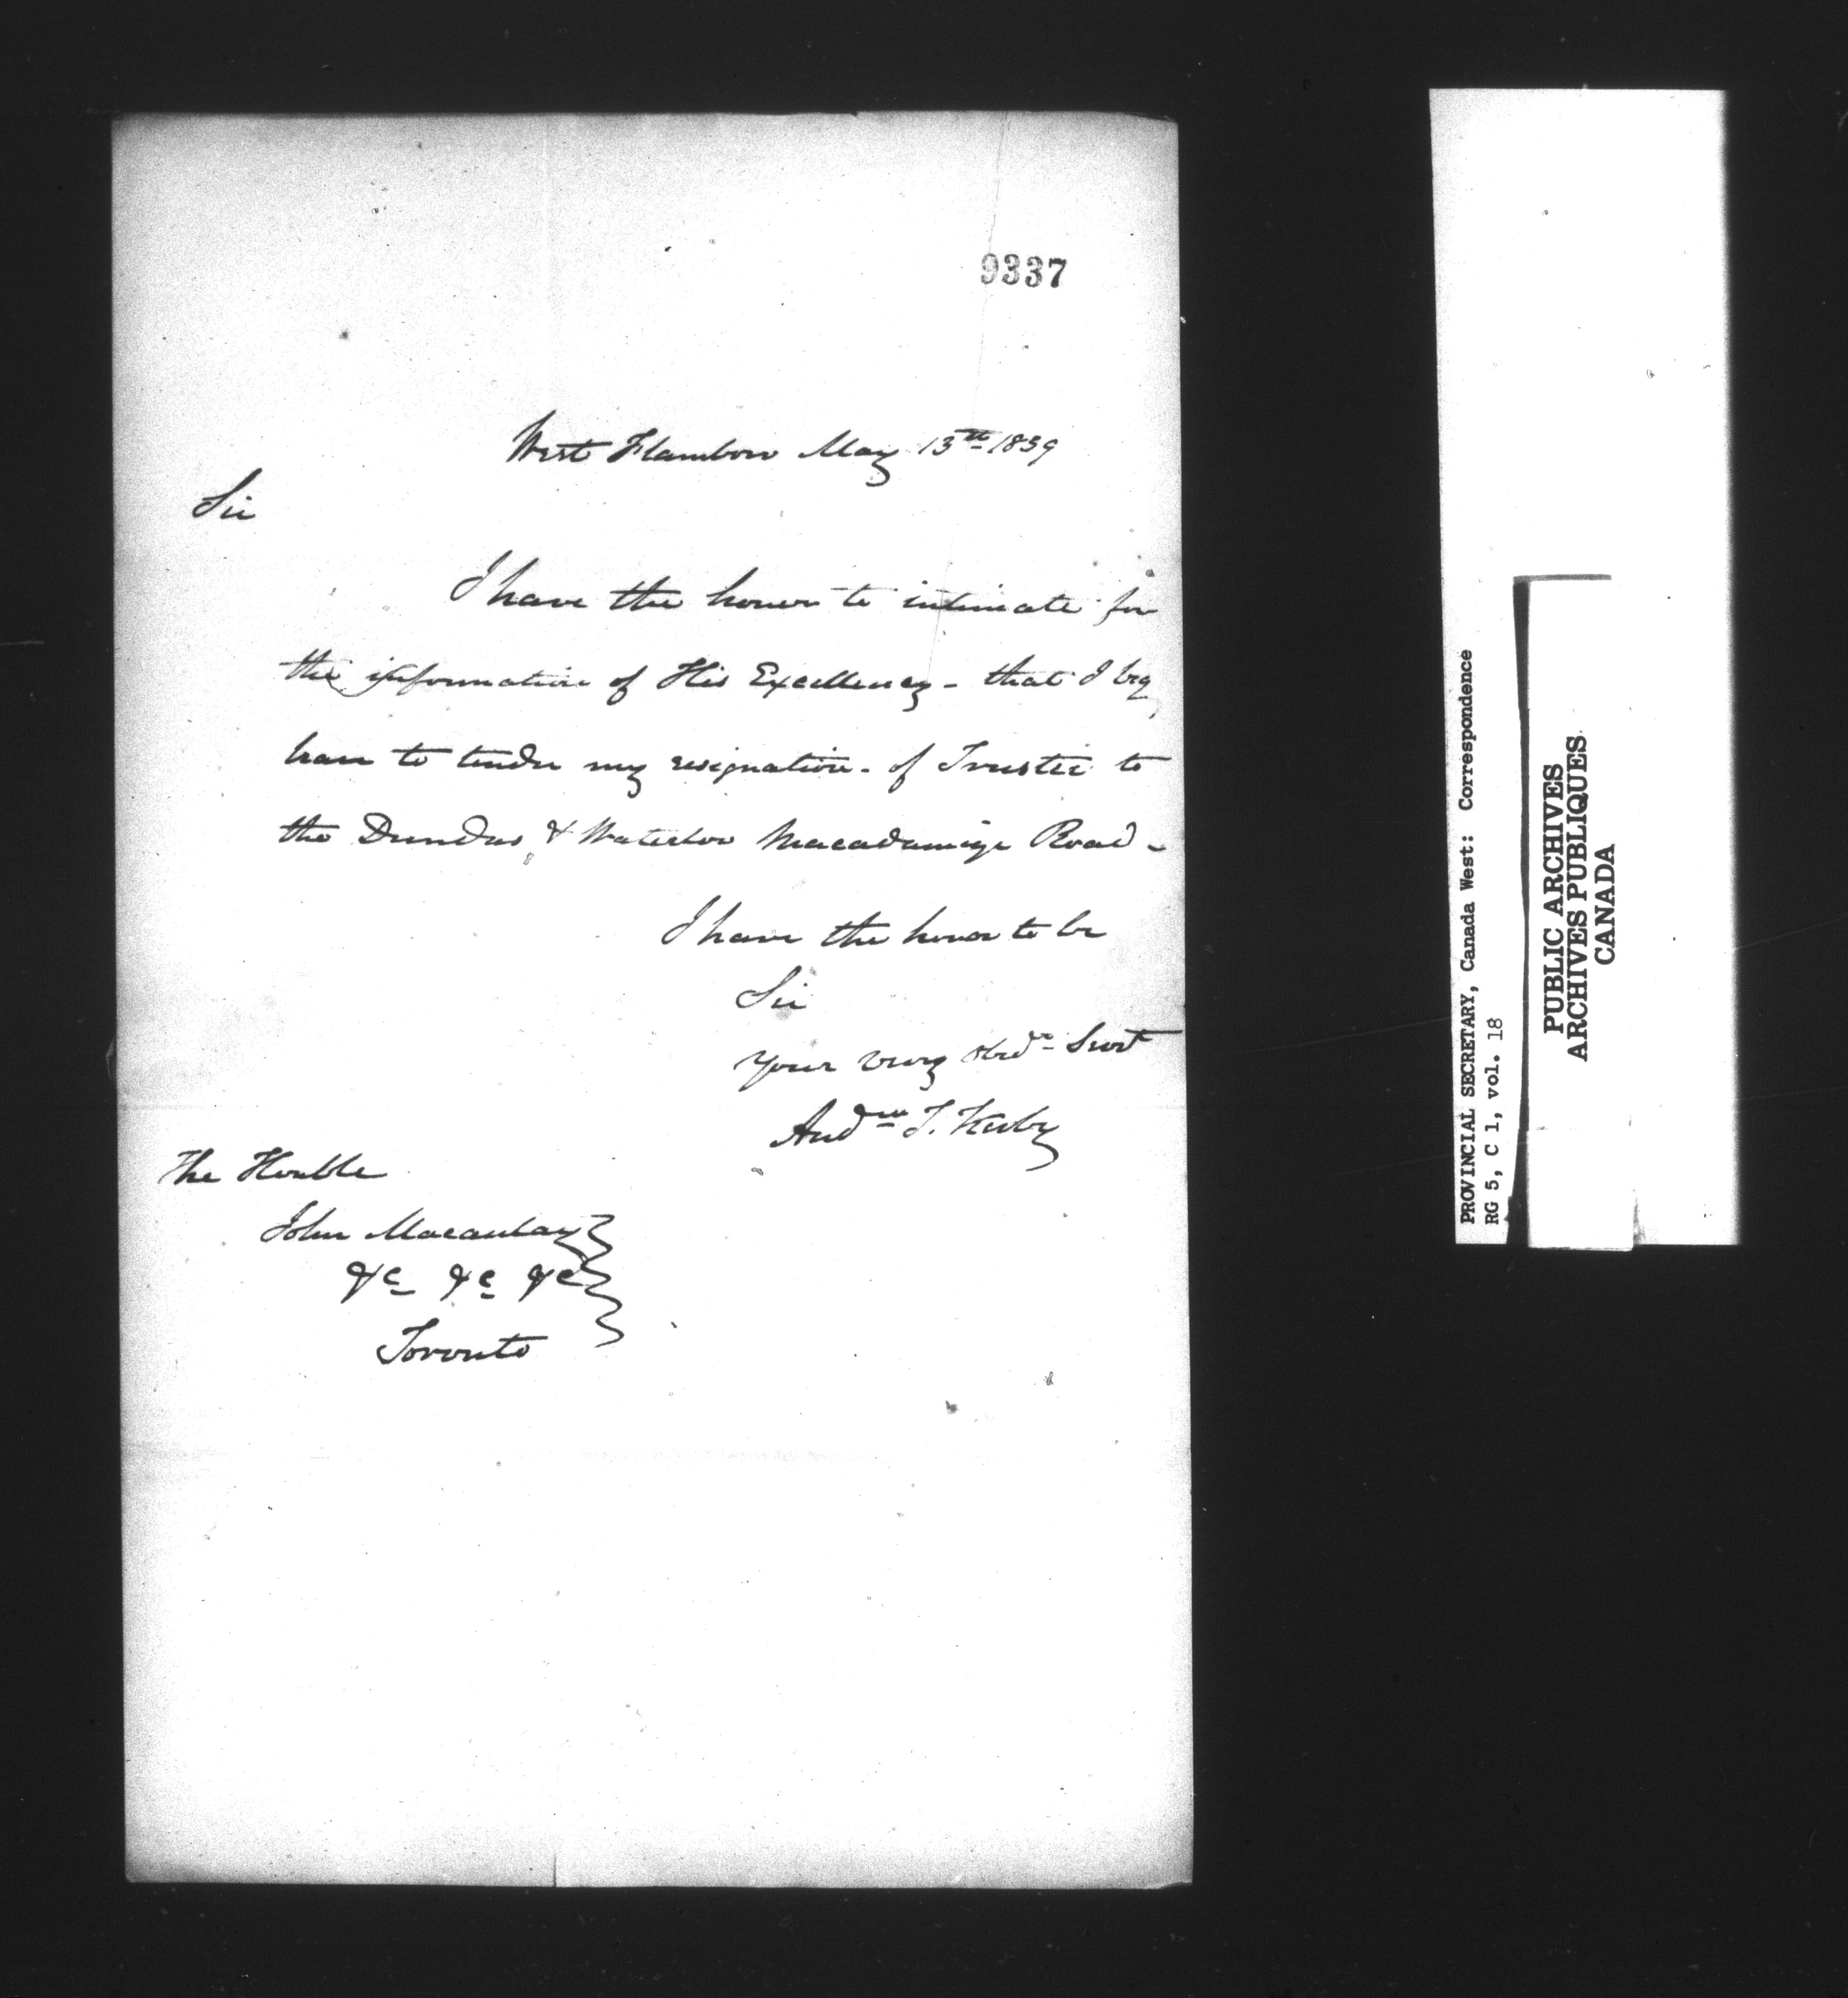 9337
West Flamboro May 13th 1839
Sir
I have the honor to intimate for
the information of His Excellency - that I beg
leave to tender my resignation - of Trustee to
the Dundas & Waterloo Macadamize Road -
I have the honor to be
Sir
Your very Obdt Servt
Andw T. Kerby
The Honble
John Macaulay
&c &c &c
Toronto
PROVINCIAL SECRETARY, Canada West: Correspondence
RG 5, C 1, vol. 18
PUBLIC ARCHIVES
ARCHIVES PUBLIQUES
CANADA